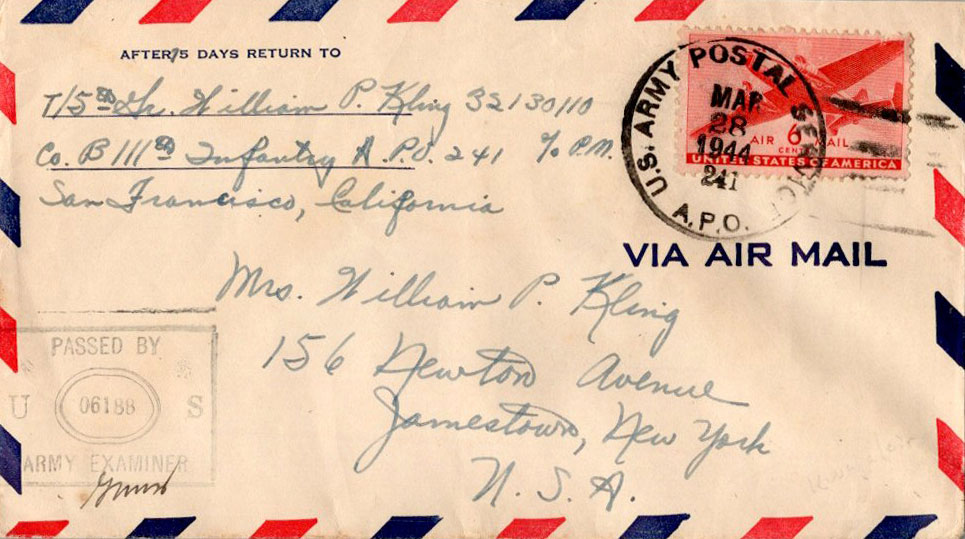 AFTER 5 DAYS RETURN TO
T/5 Gr. William P. Kling 32130110
Co. B 111th Infantry A.P.O. 241 % P.M.
San Francisco, California
U.S. ARMY POSTAL SERVICE
MAR
28
1944
241
A.P.O.
AIR 6 MAIL
CENTS
UNITED STATES OF AMERICA
VIA AIR MAIL
Mrs. William P. Kling
156 Newton Avenue
Jamestown, New York
U. S. A.
PASSED BY
U 06188 S
ARMY EXAMINER